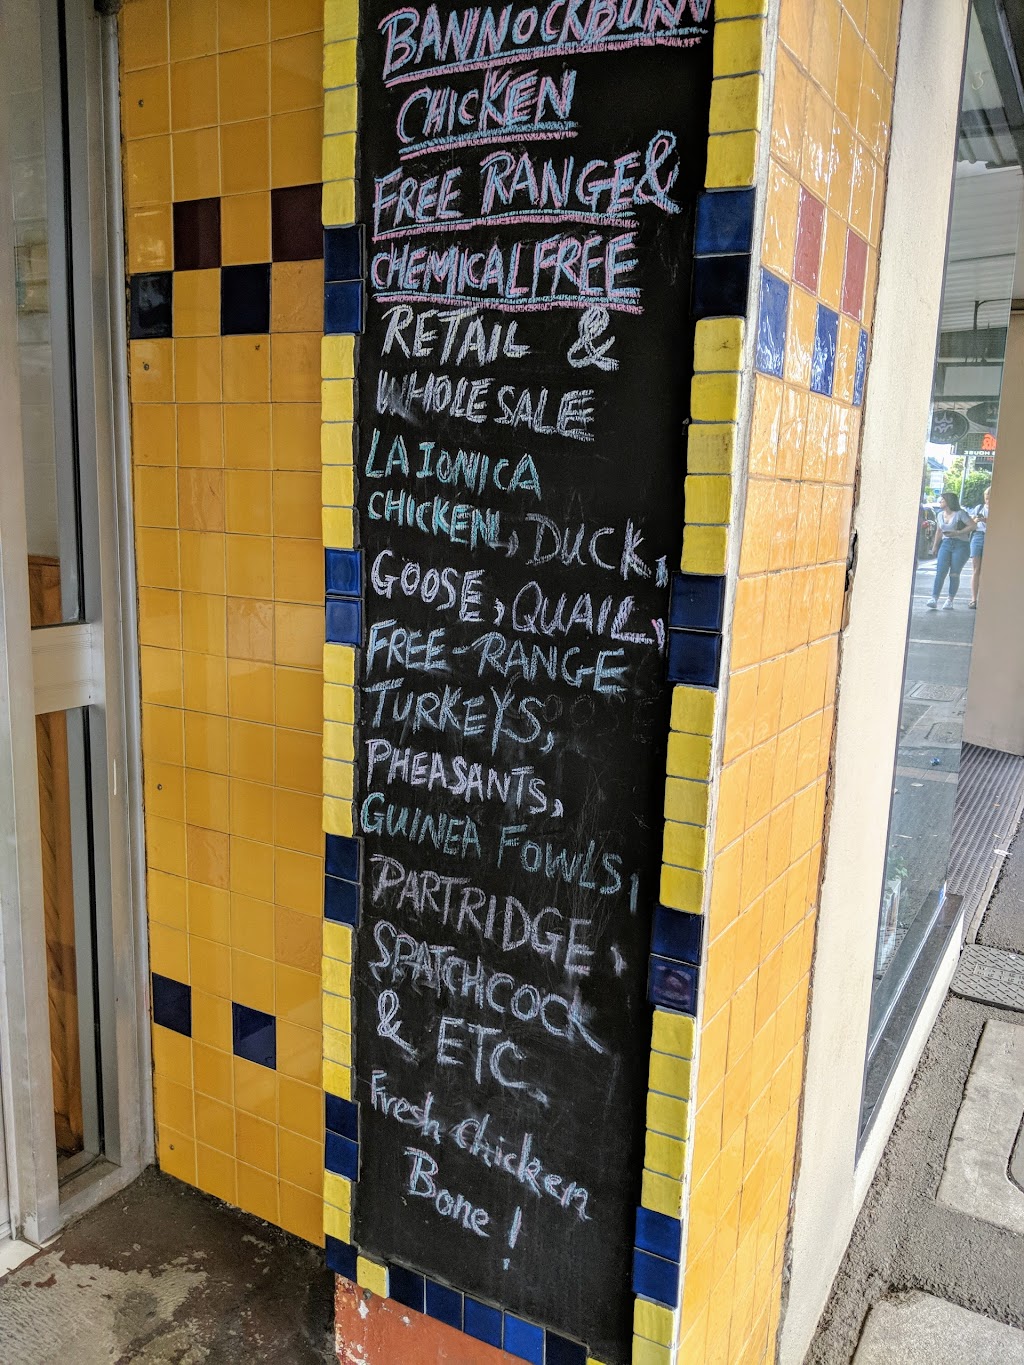 BANNOCKBURN
CHICKEN
FREE RANGE &
CHEMICAL FREE
RETAIL &
WHOLESALE
LA IONICA
CHICKEN, DUCK,
GOOSE, QUAIL,
FREE-RANGE
TURKEYS,
PHEASANTS,
GUINEA FOWLS,
PARTRIDGE,
SPATCHCOCK
& ETC
Fresh chicken
Bone!